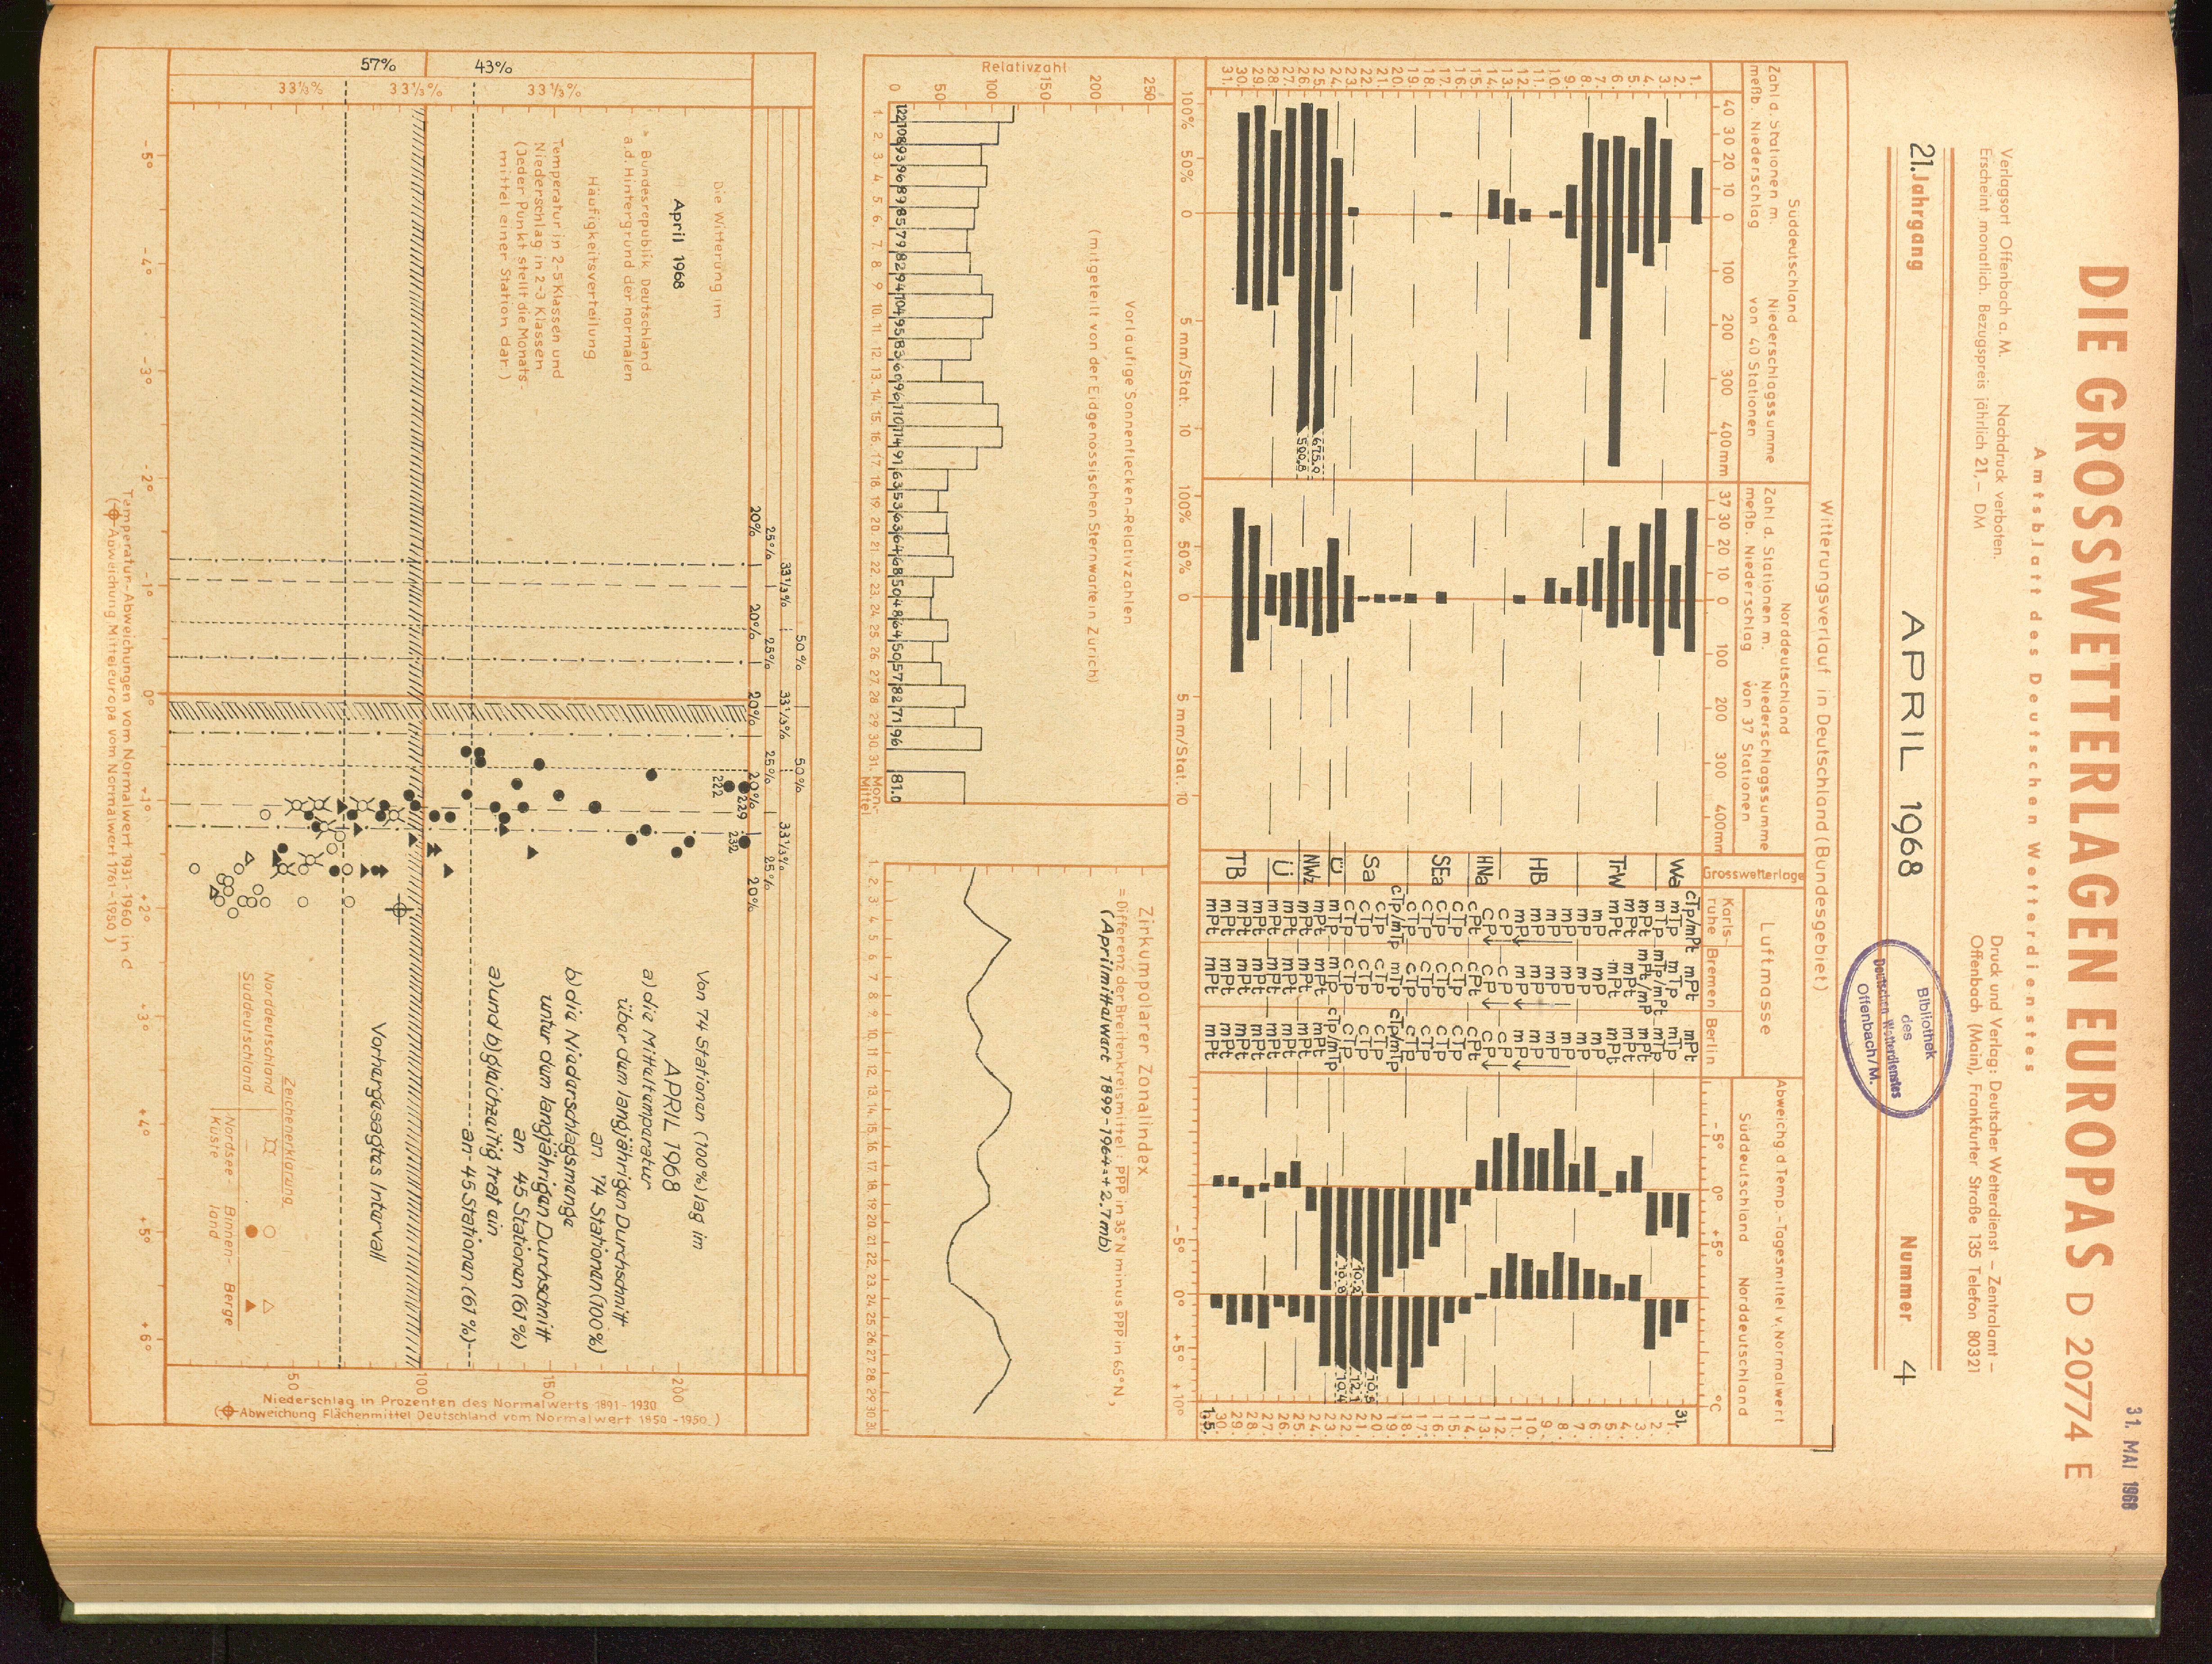 31. MAI 1968
DIE GROSSWETTERLAGEN EUROPAS D 20774 E
Amtsblatt des Deutschen Wetterdienstes
Verlagsort Offenbach a. M. Nachdruck verboten.
Erscheint monatlich. Bezugspreis jährlich 21,– DM
Druck und Verlag: Deutscher Wetterdienst – Zentralamt –
Offenbach (Main), Frankfurter Straße 135 Telefon 80321
Bibliothek
des
Deutschen Wetterdienstes
Offenbach/M.
21. Jahrgang APRIL 1968 Nummer 4
Witterungsverlauf in Deutschland (Bundesgebiet)
Süddeutschland
Zahl d. Stationen m. meßb. Niederschlag
Niederschlagssumme von 40 Stationen
40 30 20 10 0 100 200 300 400mm
Norddeutschland
Zahl d. Stationen m. meßb. Niederschlag
Niederschlagssumme von 37 Stationen
37 30 20 10 0 100 200 300 400mm
Grosswetterlage
Luftmasse
Karlsruhe Bremen Berlin
Abweichg d Temp.-Tagesmittel v. Normalwert
Süddeutschland Norddeutschland
-5° 0° +5° °C
Wa
TrW
HB
HNa
SEa
Sa
Ü
NWz
Ü
TB
675.9
500.8
10.2
10.8
10.5
12.1
10.4
100% 50% 0 5 mm/Stat. 10
100% 50% 0 5 mm/Stat. 10
-5° 0° +5° +10°
Vorläufige Sonnenflecken-Relativzahlen
(mitgeteilt von der Eidgenössischen Sternwarte in Zürich)
Relativzahl
250
200
150
100
50
0
122 108 93 96 89 85 79 82 94 104 95 83 60 96 110 114 91 63 53 63 64 68 50 48 64 50 57 82 71 96 81.0
1. 2. 3. 4. 5. 6. 7. 8. 9. 10. 11. 12. 13. 14. 15. 16. 17. 18. 19. 20. 21. 22. 23. 24. 25. 26. 27. 28. 29. 30. 31. Mon.-Mittel
Zirkumpolarer Zonalindex
= Differenz der Breitenkreismittel: PPP in 35°N minus PPP in 65°N,
(Aprilmittelwert 1899-1964:+2.7mb)
1. 2. 3. 4. 5. 6. 7. 8. 9. 10. 11. 12. 13. 14. 15. 16. 17. 18. 19. 20. 21. 22. 23. 24. 25. 26. 27. 28. 29. 30. 31.
50% 50%
33⅓% 33⅓% 33⅓%
25% 25% 25% 25%
20% 20% 20% 20% 20%
Die Witterung im
April 1968
* Bundesrepublik Deutschland
a.d. Hintergrund der normalen
Häufigkeitsverteilung
Temperatur in 2-5 Klassen und
Niederschlag in 2-3 Klassen
(Jeder Punkt stellt die Monats-
mittel einer Station dar.)
43%
57%
33⅓%
33⅓%
33⅓%
222
229
232
Von 74 Stationen (100%) lag im
APRIL 1968
a) die Mitteltemperatur
über dem langjährigen Durchschnitt
an 74 Stationen (100%)
b) die Niederschlagsmenge
unter dem langjährigen Durchschnitt
an 45 Stationen (61%)
a) und b) gleichzeitig trat ein
an 45 Stationen (61%)
Vorhergesagtes Intervall
Zeichenerklärung
Norddeutschland
Süddeutschland
Nordsee-Küste Binnenland Berge
200
150
100
50
Niederschlag in Prozenten des Normalwerts 1891-1930
( Abweichung Flächenmittel Deutschland vom Normalwert 1850-1950 )
-5° -4° -3° -2° -1° 0° +1° +2° +3° +4° +5° +6°
Temperatur-Abweichungen vom Normalwert 1931-1960 in C
( Abweichung Mitteleuropa vom Normalwert 1761-1950 )